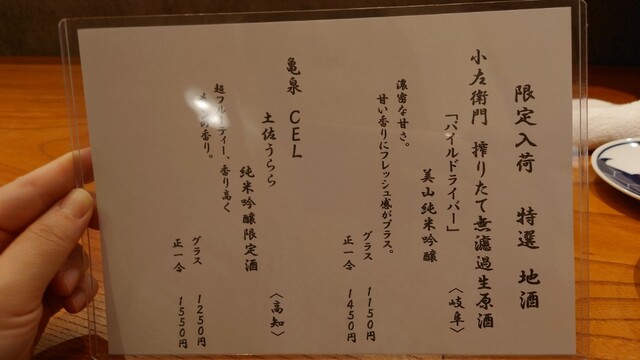 限定入荷 特選 地酒
小左衛門 搾りたて無濾過生原酒
「パイルドライバー」 〈岐阜〉
美山純米吟醸
濃密な甘さ。
甘い香りにフレッシュ感がプラス。
グラス 1150円
正一合 1450円
亀泉 CEL
土佐うらら 〈高知〉
純米吟醸限定酒
超フルーティー、香り高く
の香り。
グラス 1250円
正一合 1550円